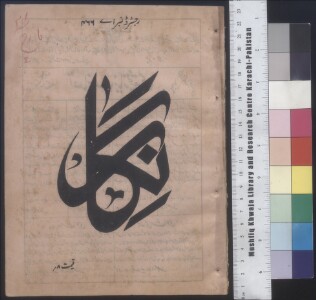 رجسٹرڈ نمبر اے ۴۶۶
نگار
قیمت ۸؍
Mushfiq Khwaja Library and Research Centre Karachi-Pakistan